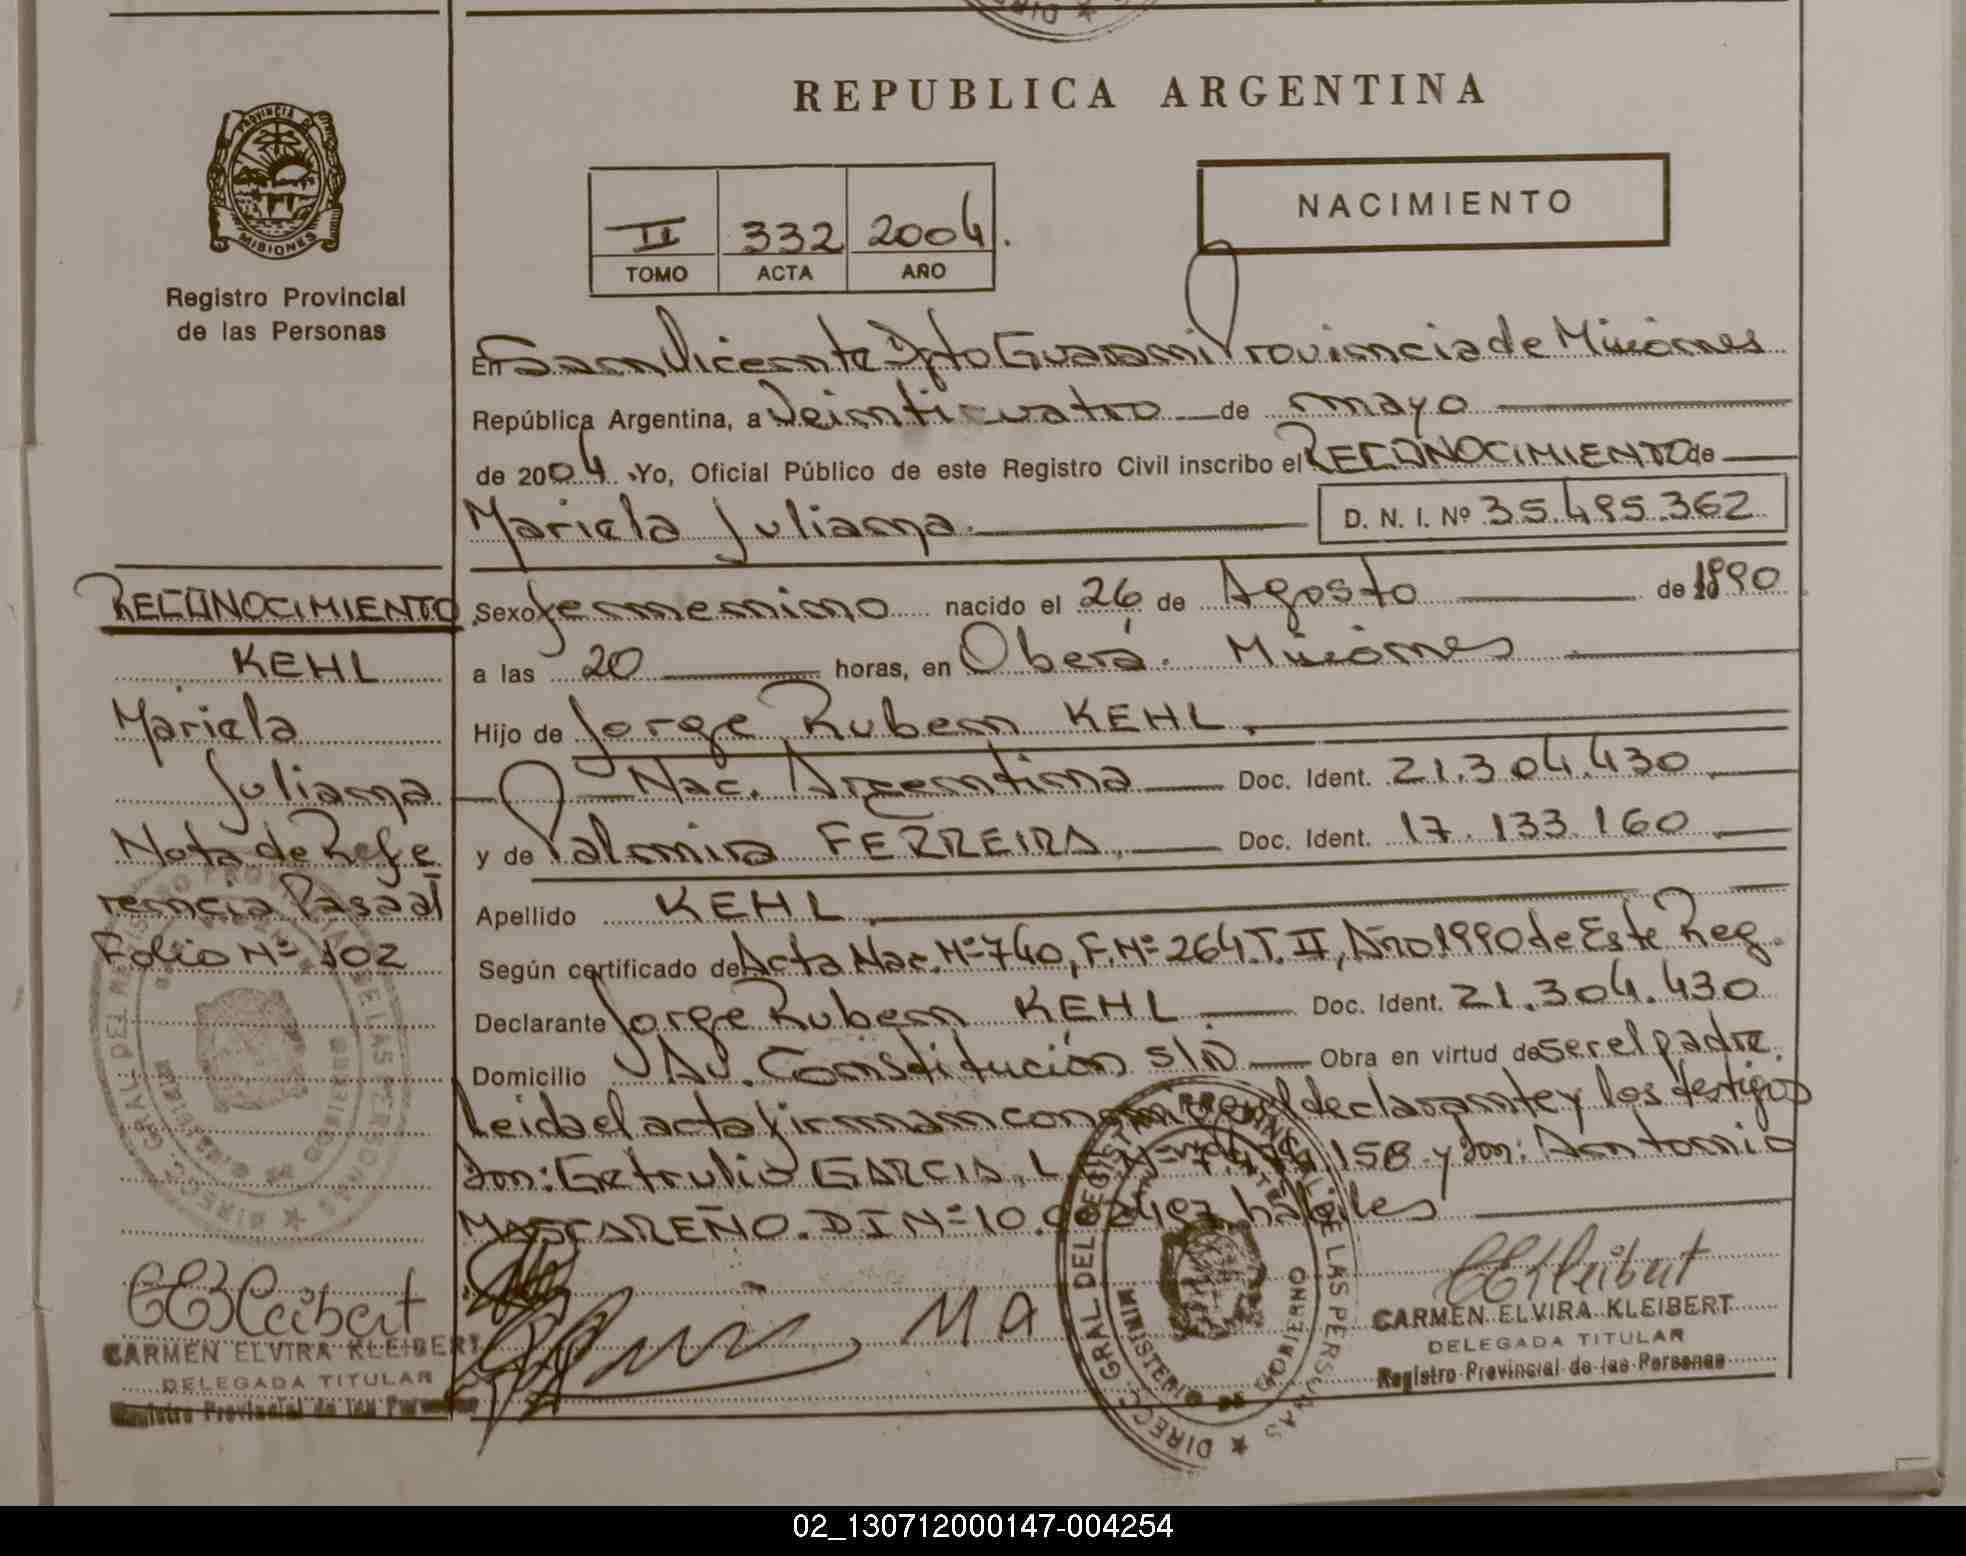 REPUBLICA ARGENTINA
PROVINCIA DE
MISIONES
Registro Provincial
de las Personas
II 332 2004.
TOMO ACTA AÑO
NACIMIENTO
En San Vicente Dpto Guaraní Provincia de Misiones
República Argentina, a Veinticuatro de mayo
de 2004. Yo, Oficial Público de este Registro Civil inscribo el RECONOCIMIENTO de
Mariela Juliana. D. N. I. Nº 35.495.362
Sexo femenino nacido el 26 de Agosto de 1990
a las 20 horas, en Oberá. Misiones
Hijo de Jorge Ruben KEHL.
Nac. Argentina Doc. Ident. 21.304.430
y de Palmira FERREIRA. Doc. Ident. 17.133.160
Apellido KEHL
Según certificado de Acta Nac. Nº 740, F. Nº 264. T. II, Año 1990 de Este Reg.
Declarante Jorge Ruben KEHL Doc. Ident. 21.304.430
Domicilio Av. Constitución S/N Obra en virtud de ser el padre.
Leida el acta firman conmigo el declarante y los testigos
Don: Getrulio GARCIA, L 158 y Don: Antonio
MASCAREÑO. D I Nº 10. habiles
RECONOCIMIENTO
KEHL
Mariela
Juliana
Nota de Refe
rencia Pasa al
Folio Nº 102
CEKleibert
CARMEN ELVIRA KLEIBERT
DELEGADA TITULAR
Registro Provincial de las Personas
MA
DIRECC. GRAL DEL REGISTRO PROVINCIAL DE LAS PERSONAS
MINISTERIO DE GOBIERNO
CEKleibert
CARMEN ELVIRA KLEIBERT
DELEGADA TITULAR
Registro Provincial de las Personas
02_130712000147-004254